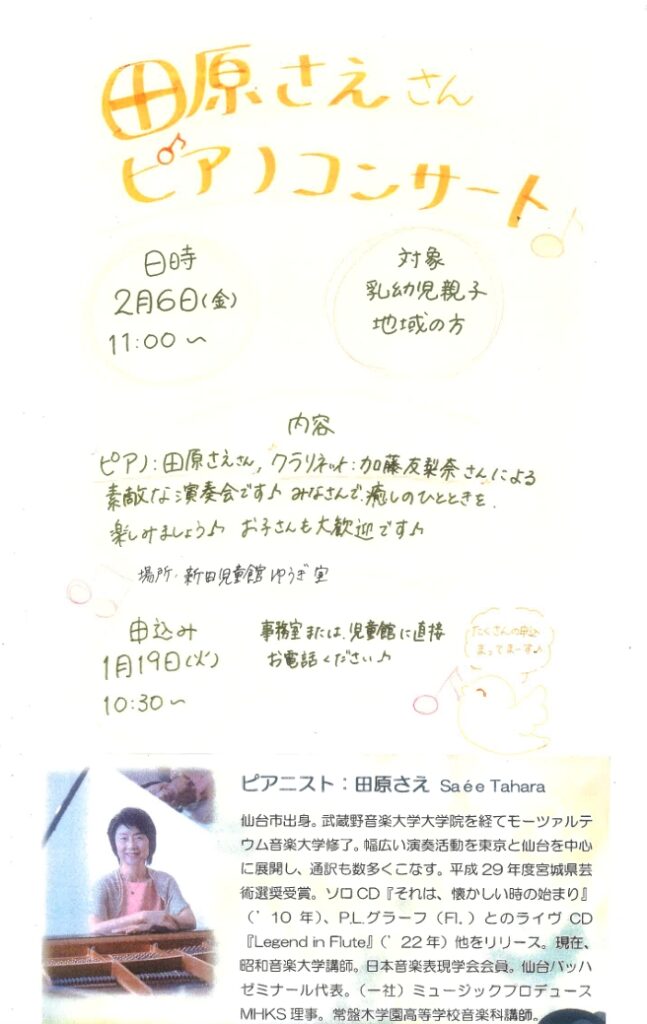 田原さえさん
ピアノコンサート
日時
2月6日(金)
11:00〜
対象
乳幼児親子
地域の方
内容
ピアノ:田原さえさん, クラリネット:加藤友梨奈さんによる
素敵な演奏会です♪ みなさんで、癒しのひとときを、
楽しみましょう♪ お子さんも大歓迎です♪
場所・新田児童館ゆうぎ室
申込み
1月19日(火)
10:30〜
事務室または、児童館に直接
お電話ください♪
たくさんの申込
まってまーす♪
ピアニスト:田原さえ Saée Tahara
仙台市出身。武蔵野音楽大学大学院を経てモーツァルテ
ウム音楽大学修了。幅広い演奏活動を東京と仙台を中心
に展開し、通訳も数多くこなす。平成29年度宮城県芸
術選奨受賞。ソロCD『それは、懐かしい時の始まり』
('10年)、P.L.グラーフ(Fl.)とのライヴCD
『Legend in Flute』('22年)他をリリース。現在、
昭和音楽大学講師。日本音楽表現学会会員。仙台バッハ
ゼミナール代表。(一社)ミュージックプロデュース
MHKS理事。常盤木学園高等学校音楽科講師。